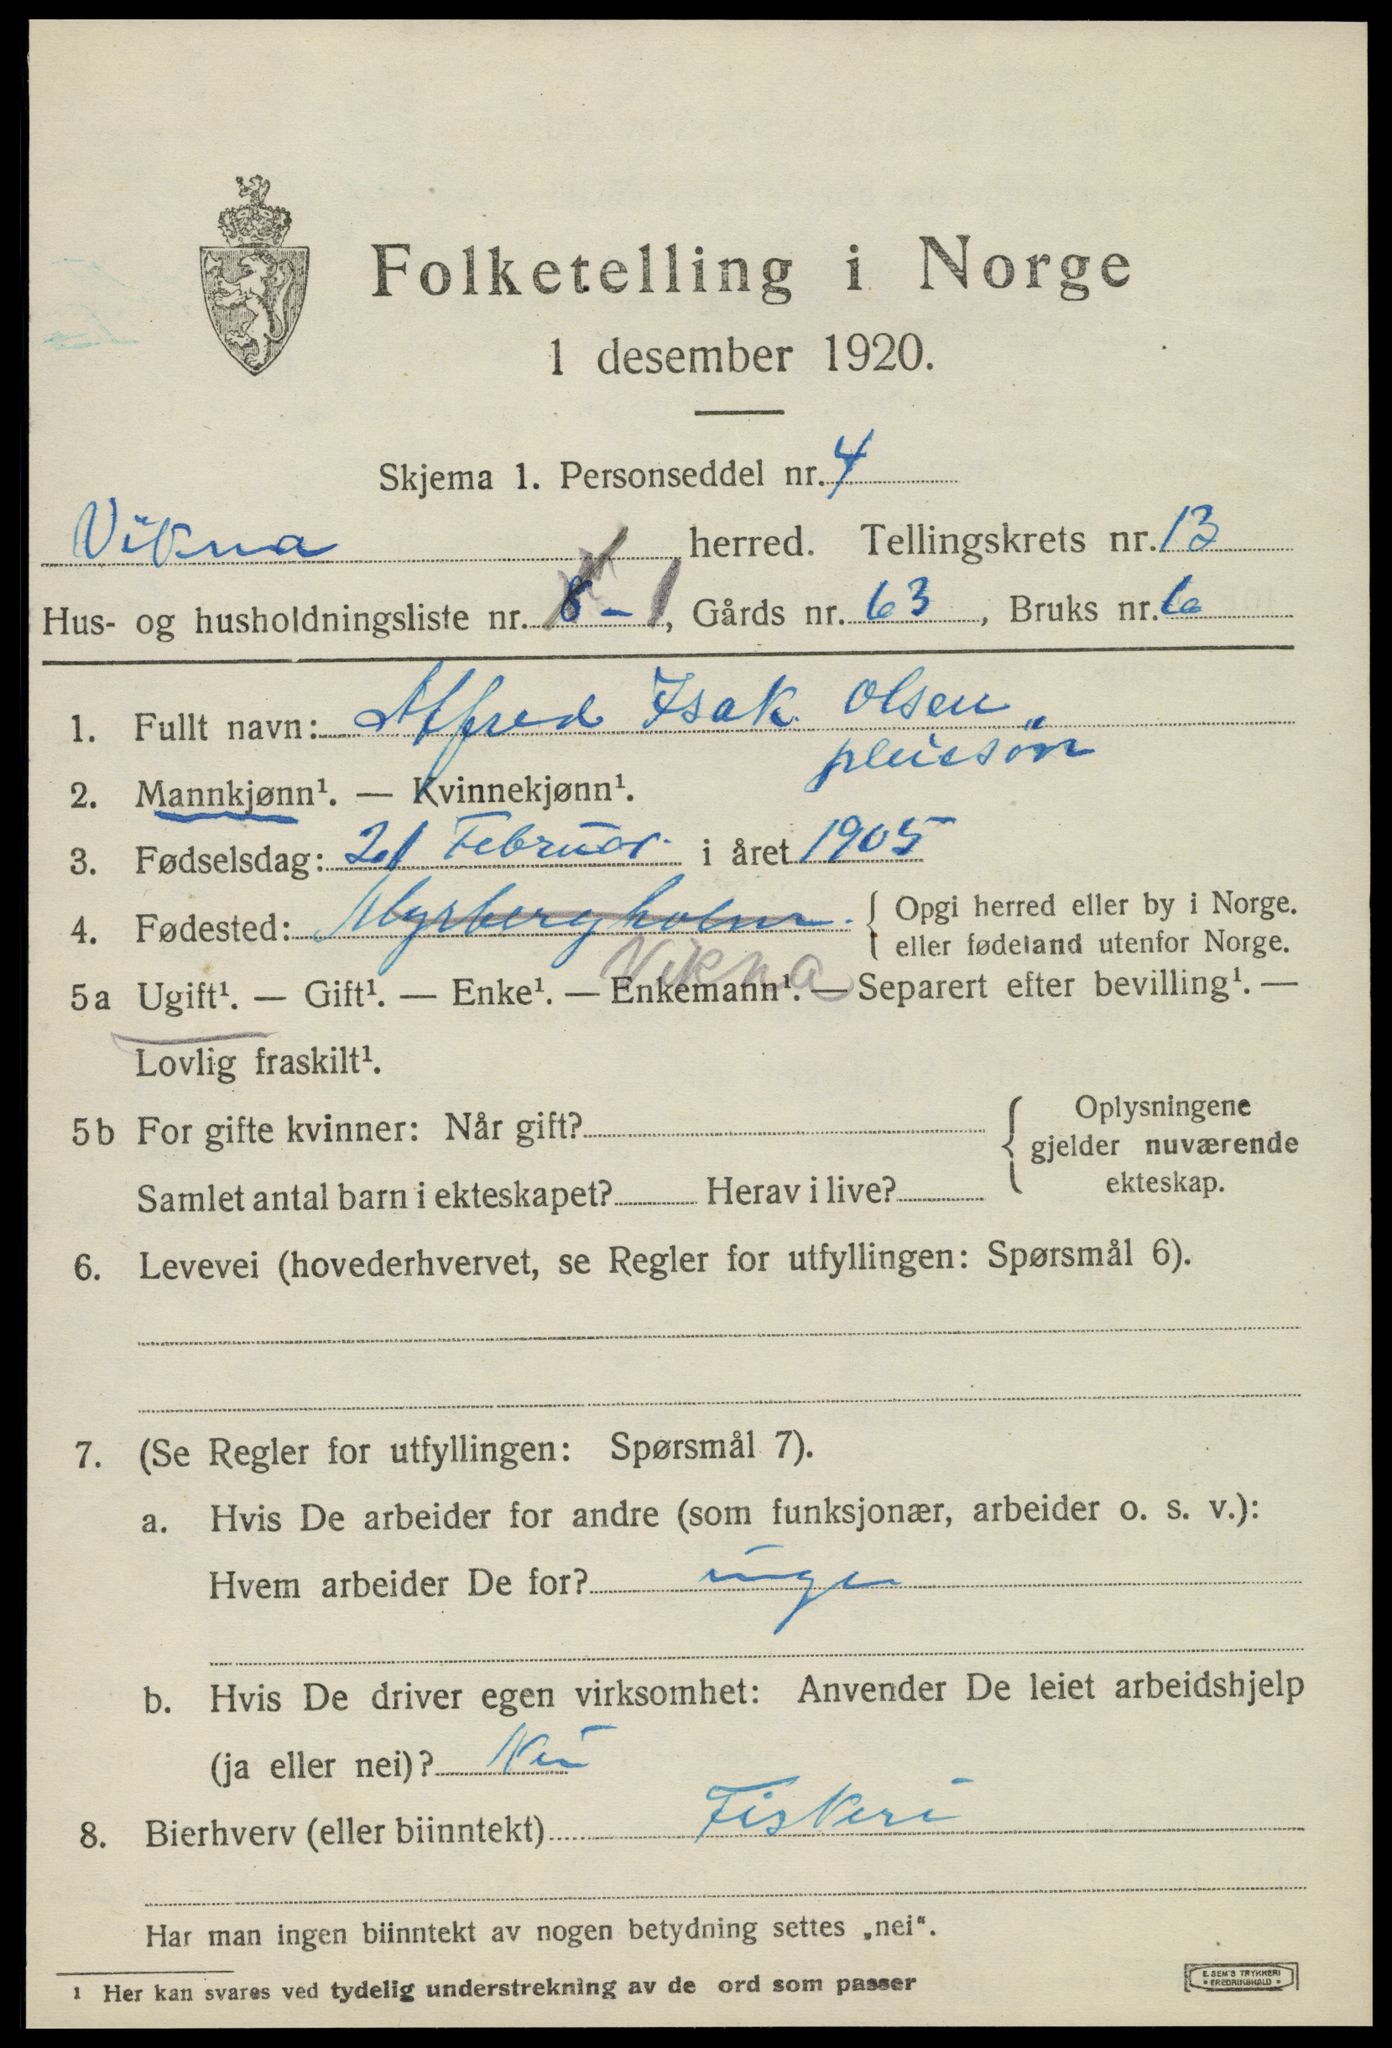 Folketelling i Norge
1 desember 1920.
Skjema 1. Personseddel nr. 4
Vikna herred. Tellingskrets nr. 13
Hus- og husholdningsliste nr. 8 - 1, Gårds nr. 63, Bruks nr. 6
1. Fullt navn: Alfred Isak Olsen
pleiesøn
2. Mannkjønn¹. — Kvinnekjønn¹.
3. Fødselsdag: 21 Februar i året 1905
4. Fødested: Myrbergholm { Opgi herred eller by i Norge.
eller fødeland utenfor Norge.
Vikna
5a Ugift¹. — Gift¹. — Enke¹. — Enkemann¹. — Separert efter bevilling¹. —
Lovlig fraskilt¹.
5b For gifte kvinner: Når gift? { Oplysningene
gjelder nuværende
Samlet antal barn i ekteskapet? Herav i live? ekteskap.
6. Levevei (hovederhvervet, se Regler for utfyllingen: Spørsmål 6).
7. (Se Regler for utfyllingen: Spørsmål 7).
a. Hvis De arbeider for andre (som funksjonær, arbeider o. s. v.):
Hvem arbeider De for? ingen
b. Hvis De driver egen virksomhet: Anvender De leiet arbeidshjelp
(ja eller nei)? Nei
8. Bierhverv (eller biinntekt) Fiskeri
Har man ingen biinntekt av nogen betydning settes „nei“.
1 Her kan svares ved tydelig understrekning av de ord som passer
E. SEM'S TRYKKERI
• FREDRIKSHALD •